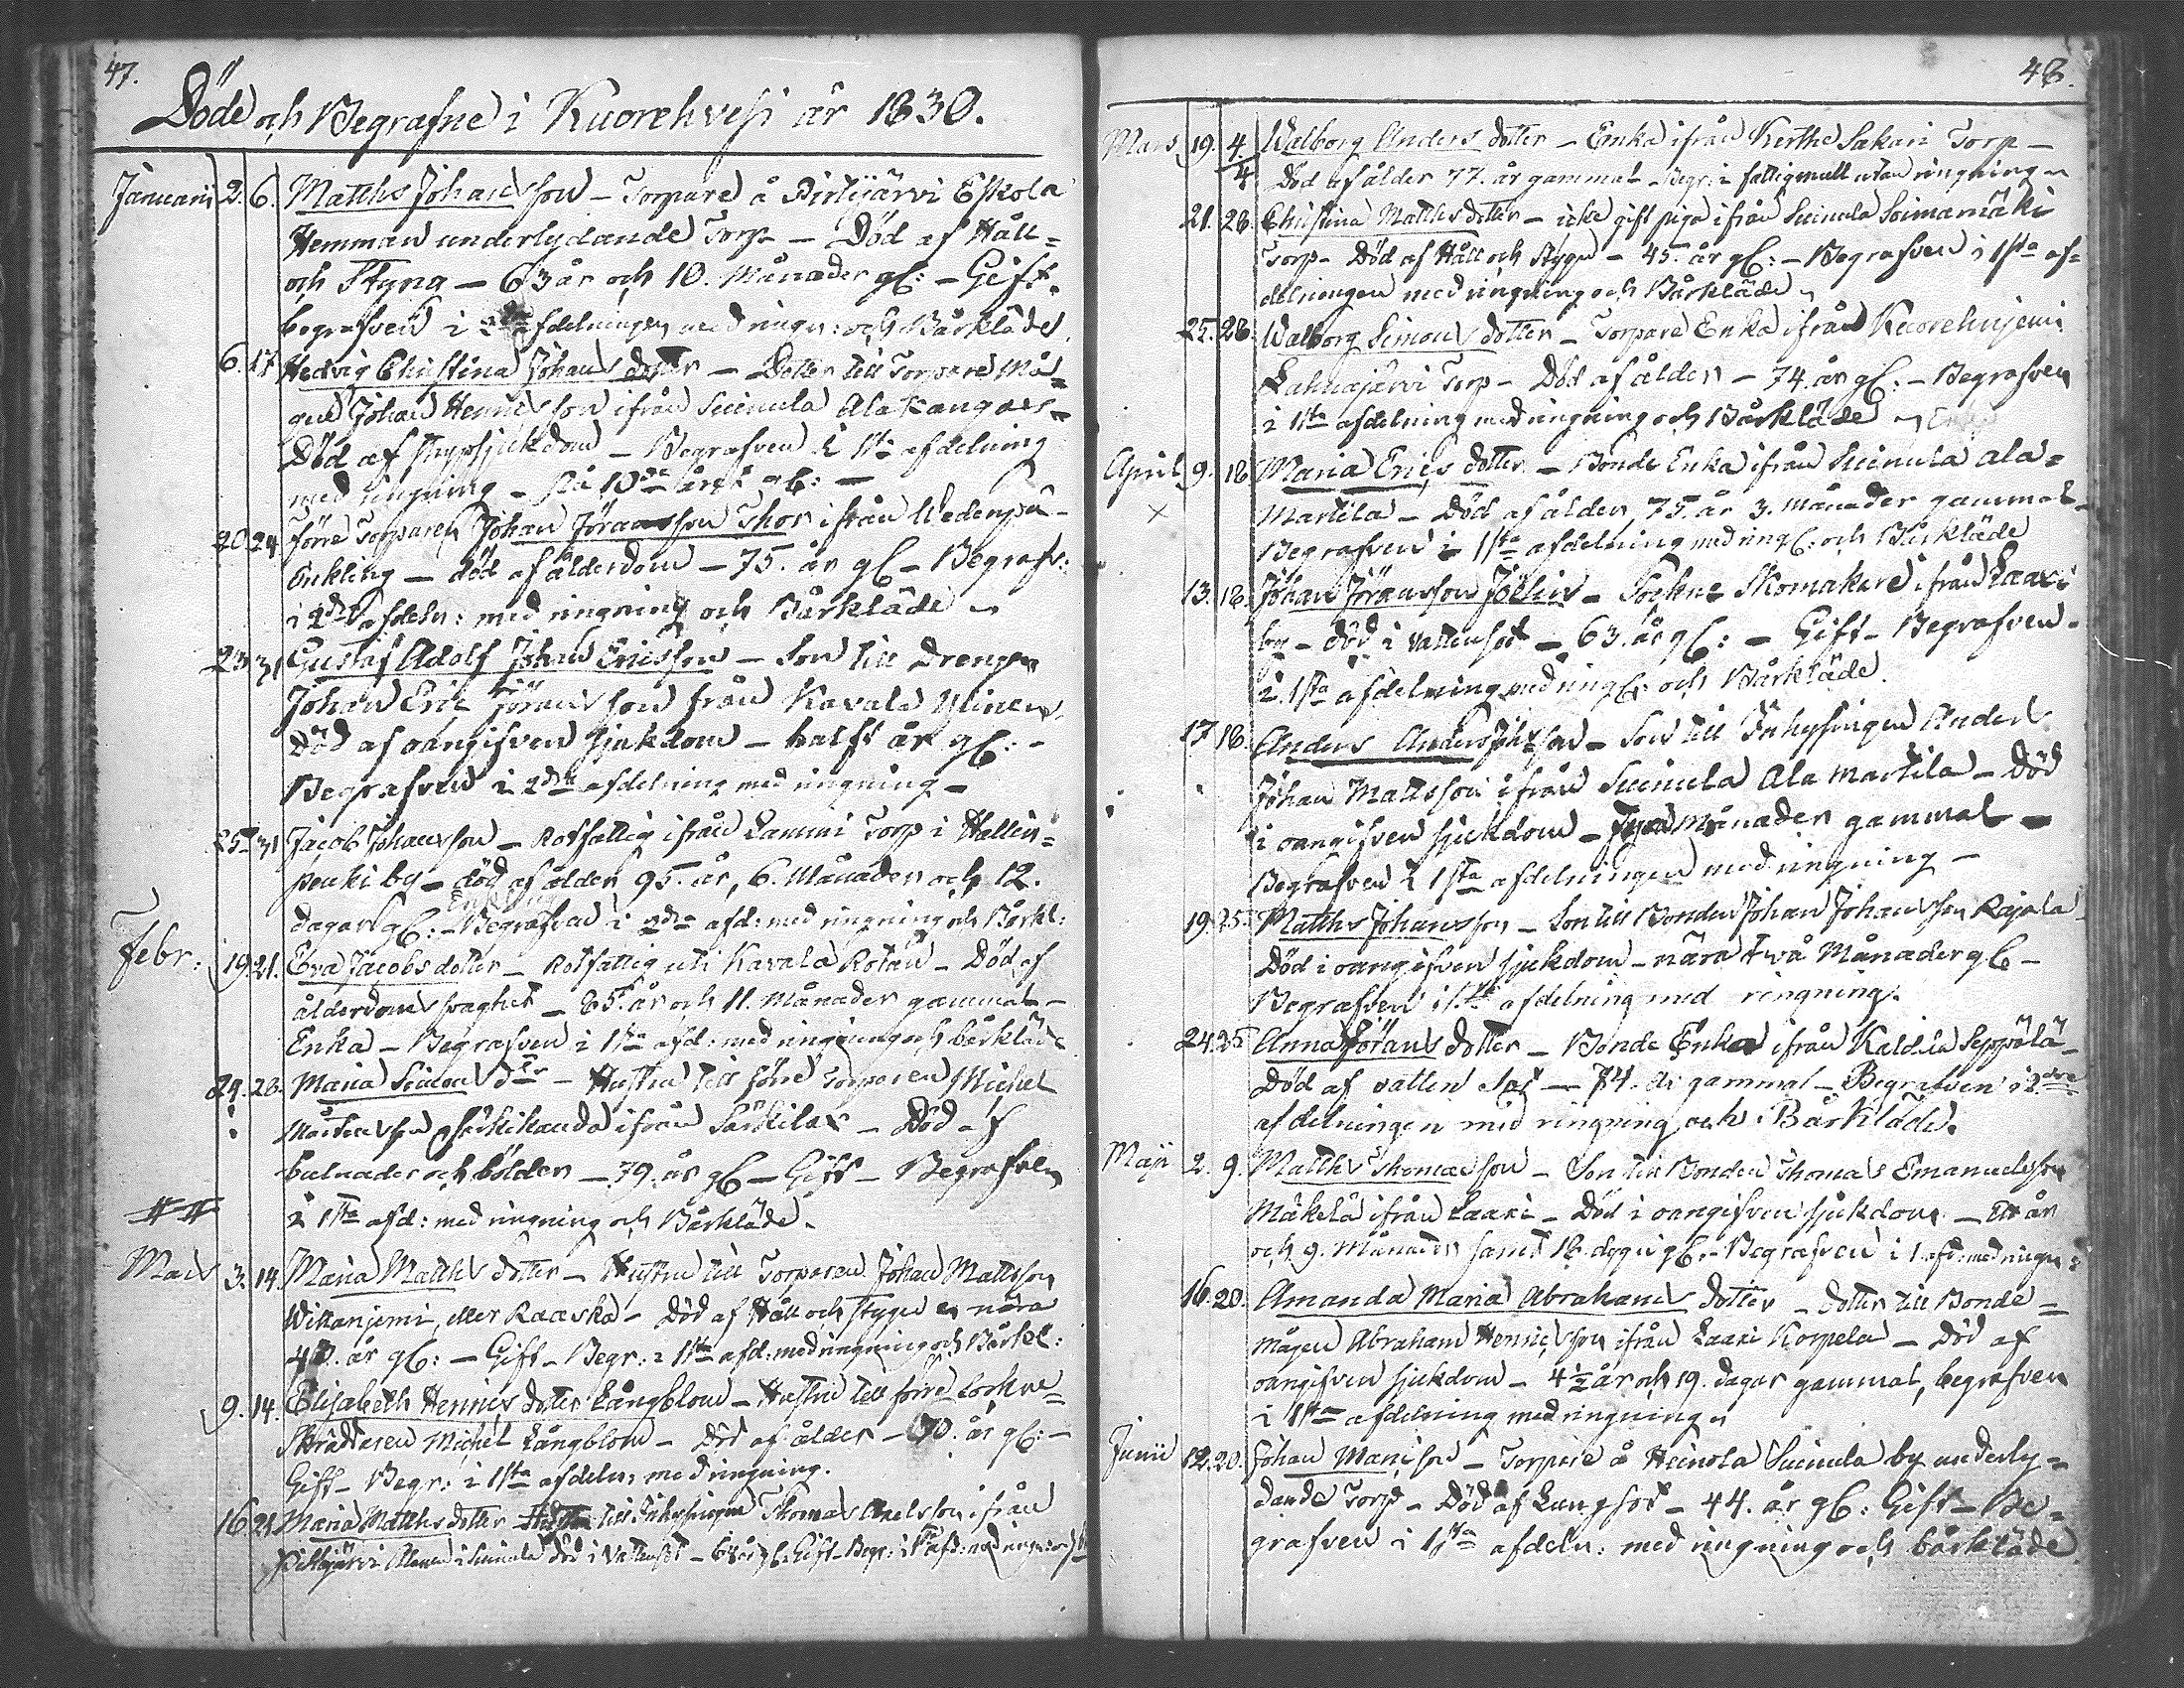 47.
Döde och Begrafne i Kuorehvesi år 1830.
Januarii 2. 6. Matths Johansson – Torpare å Pirttijärvi Eskola
Hemman underlydande Torp – Död af Håll=
och Styng – 63 år och 10. Månader gl: – Gift.
begrafven i afdelningen med ringn: och Bårkläde
6. 17 Hedvig Christina Johans dotter – Dotter till Torpare Må=
gen Johan Henricsson ifrån Suinula Alakangas –
Död af sjukdom – Begrafven i 1sta afdelning
med ringning – På 10de året gl: –
20 24 Förre Torparen Johan Jöransson Thor ifrån
Enkling – död af ålderdom – 75. år gl – Begrafv:
i 2dra afdeln: med ringning och Bårkläde
23 31 Gustaf Adolf Johan Ericsson – Son till Drengen
Johan Eric Jöransson från Kavala Ylinen,
Död af oangifven sjukdom – halft år gl: –
Begrafven i 2dra afdelning med ringning –
25 31 Jacob Johansson – Rotfattig ifrån Lammi Torp i Hallin=
penki by – död af ålder 95. år, 6. Månader och 12.
Enkling
dagar gl: – Begrafven i 2dra afd: med ringning och Bårkl:
Febr: 19. 21. Eva Jacobs dotter – Rotfattig uti Kavala Rotan – Död af
ålderdoms svaghet – 85. år och 11. Månader gammal –
Enka – Begrafven i 1sta afd: med ringning och bårkläde
24. 28. Maria Simons dr – Hustru till förre Torparen Michel
Mårtensson ifrån Särkilax – Död af
bulnader och bölder – 79. år gl – Gift – Begrafven
i 1sta afd: med ringning och Bårkläde.
Mars 3. 14. Maria Matths dotter – Hustru till Torparen Johan Mattsson
Wikaniemi, eller Raaska – Död af Håll och styng nära
40. år gl: – Gift – Begr: i 1sta afd: med ringning och Bårkl:
9. 14. Elisabeth Henrics dotter Långblom – Hustru till förre Sockne=
Skräddaren Michel Långblom – Död af ålder – 70. år gl: –
Gift – Begr: i 1sta afdeln: med ringning.
16. 21 Maria Matths dotter Hustru till Inhysingen Thomas Axelsson ifrån
Pirttijärvi i Suinula död i Vattusot – gl. Gift – Begr: i 1sta afd: med ringn:
48.
Mars 19. 4/4 Walborg Anders dotter – Enka ifrån Kerthe Sakari Torp –
Död af ålder 77. år gammal – Begr: i fattigmull utan ringning
21. 28. Christina Matths dotter – icke gift piga ifrån Suinula Soimamäki
Torp – Död af Håll och Styng – 45. år gl: – Begrafven i 1sta af=
delningen med ringning och Bårkläde
25. 28. Walborg Simons dotter – Torpare Enka ifrån Kuorehniemi
Lahnajärvi Torp – Död af ålder – 74. år gl: – Begrafven
i 1sta afdelning med ringning och Bårkläde
April 9. 18. Maria Erics dotter – Bonde Enka ifrån Suinula Ala=
Martila – Död af ålder, 75. år 3. månader gammal –
Begrafven i 1sta afdelning med ring: och Bårkläde
13. 18. Johan Jöransson Jölin – Sockne Skomakare ifrån Laari
by – Död i vattensot – 63. år gl: – Gift – Begrafven
i 1sta afdelning med ring: och Bårkläde.
17 18. Anders Anders Johsson – Son till Inhysingen Anders
Johan Mattsson ifrån Suinula Ala Martila – Död
i oangifven sjukdom – Fyra Månader gammal –
Begrafven i 1sta afdelningen med ringning –
19. 25. Matths Johansson – Son till Bonden Johan Johansson Rajala
Död i oangifven sjukdom – nära två Månader gl –
Begrafven i 1sta afdelning med ringning.
24. 25 Anna Jörans dotter – Bonde Enka ifrån Kaldila Seppälä –
Död af vatten Sot – 74. år gammal – Begrafven i 2dra
afdelningen med ringning och Bårkläde.
Maji 2. 9. Matths Thomasson – Son till Bonden Thomas Emanuelsson
Mäkelä ifrån Laari – Död i oangifven sjukdom – Ett år
och 9. Månader samt 18. dygn gl. – Begrafven i 1. afd: med ringn:
16. 20. Amanda Maria Abrahams dotter – dotter till Bonde=
mågen Abraham Henricsson ifrån Laari Korpela – Död af
oangifven sjukdom – 4½ år och 19. dagar gammal, begrafven
i 1sta afdelning med ringning
Junii 12. 20. Johan – Torpare å Heinola Suinula by underly=
dande Torp – Död af Lungsot – 44. år gl: Gift – Be=
grafven i 1sta afdeln: med ringning och bårkläde